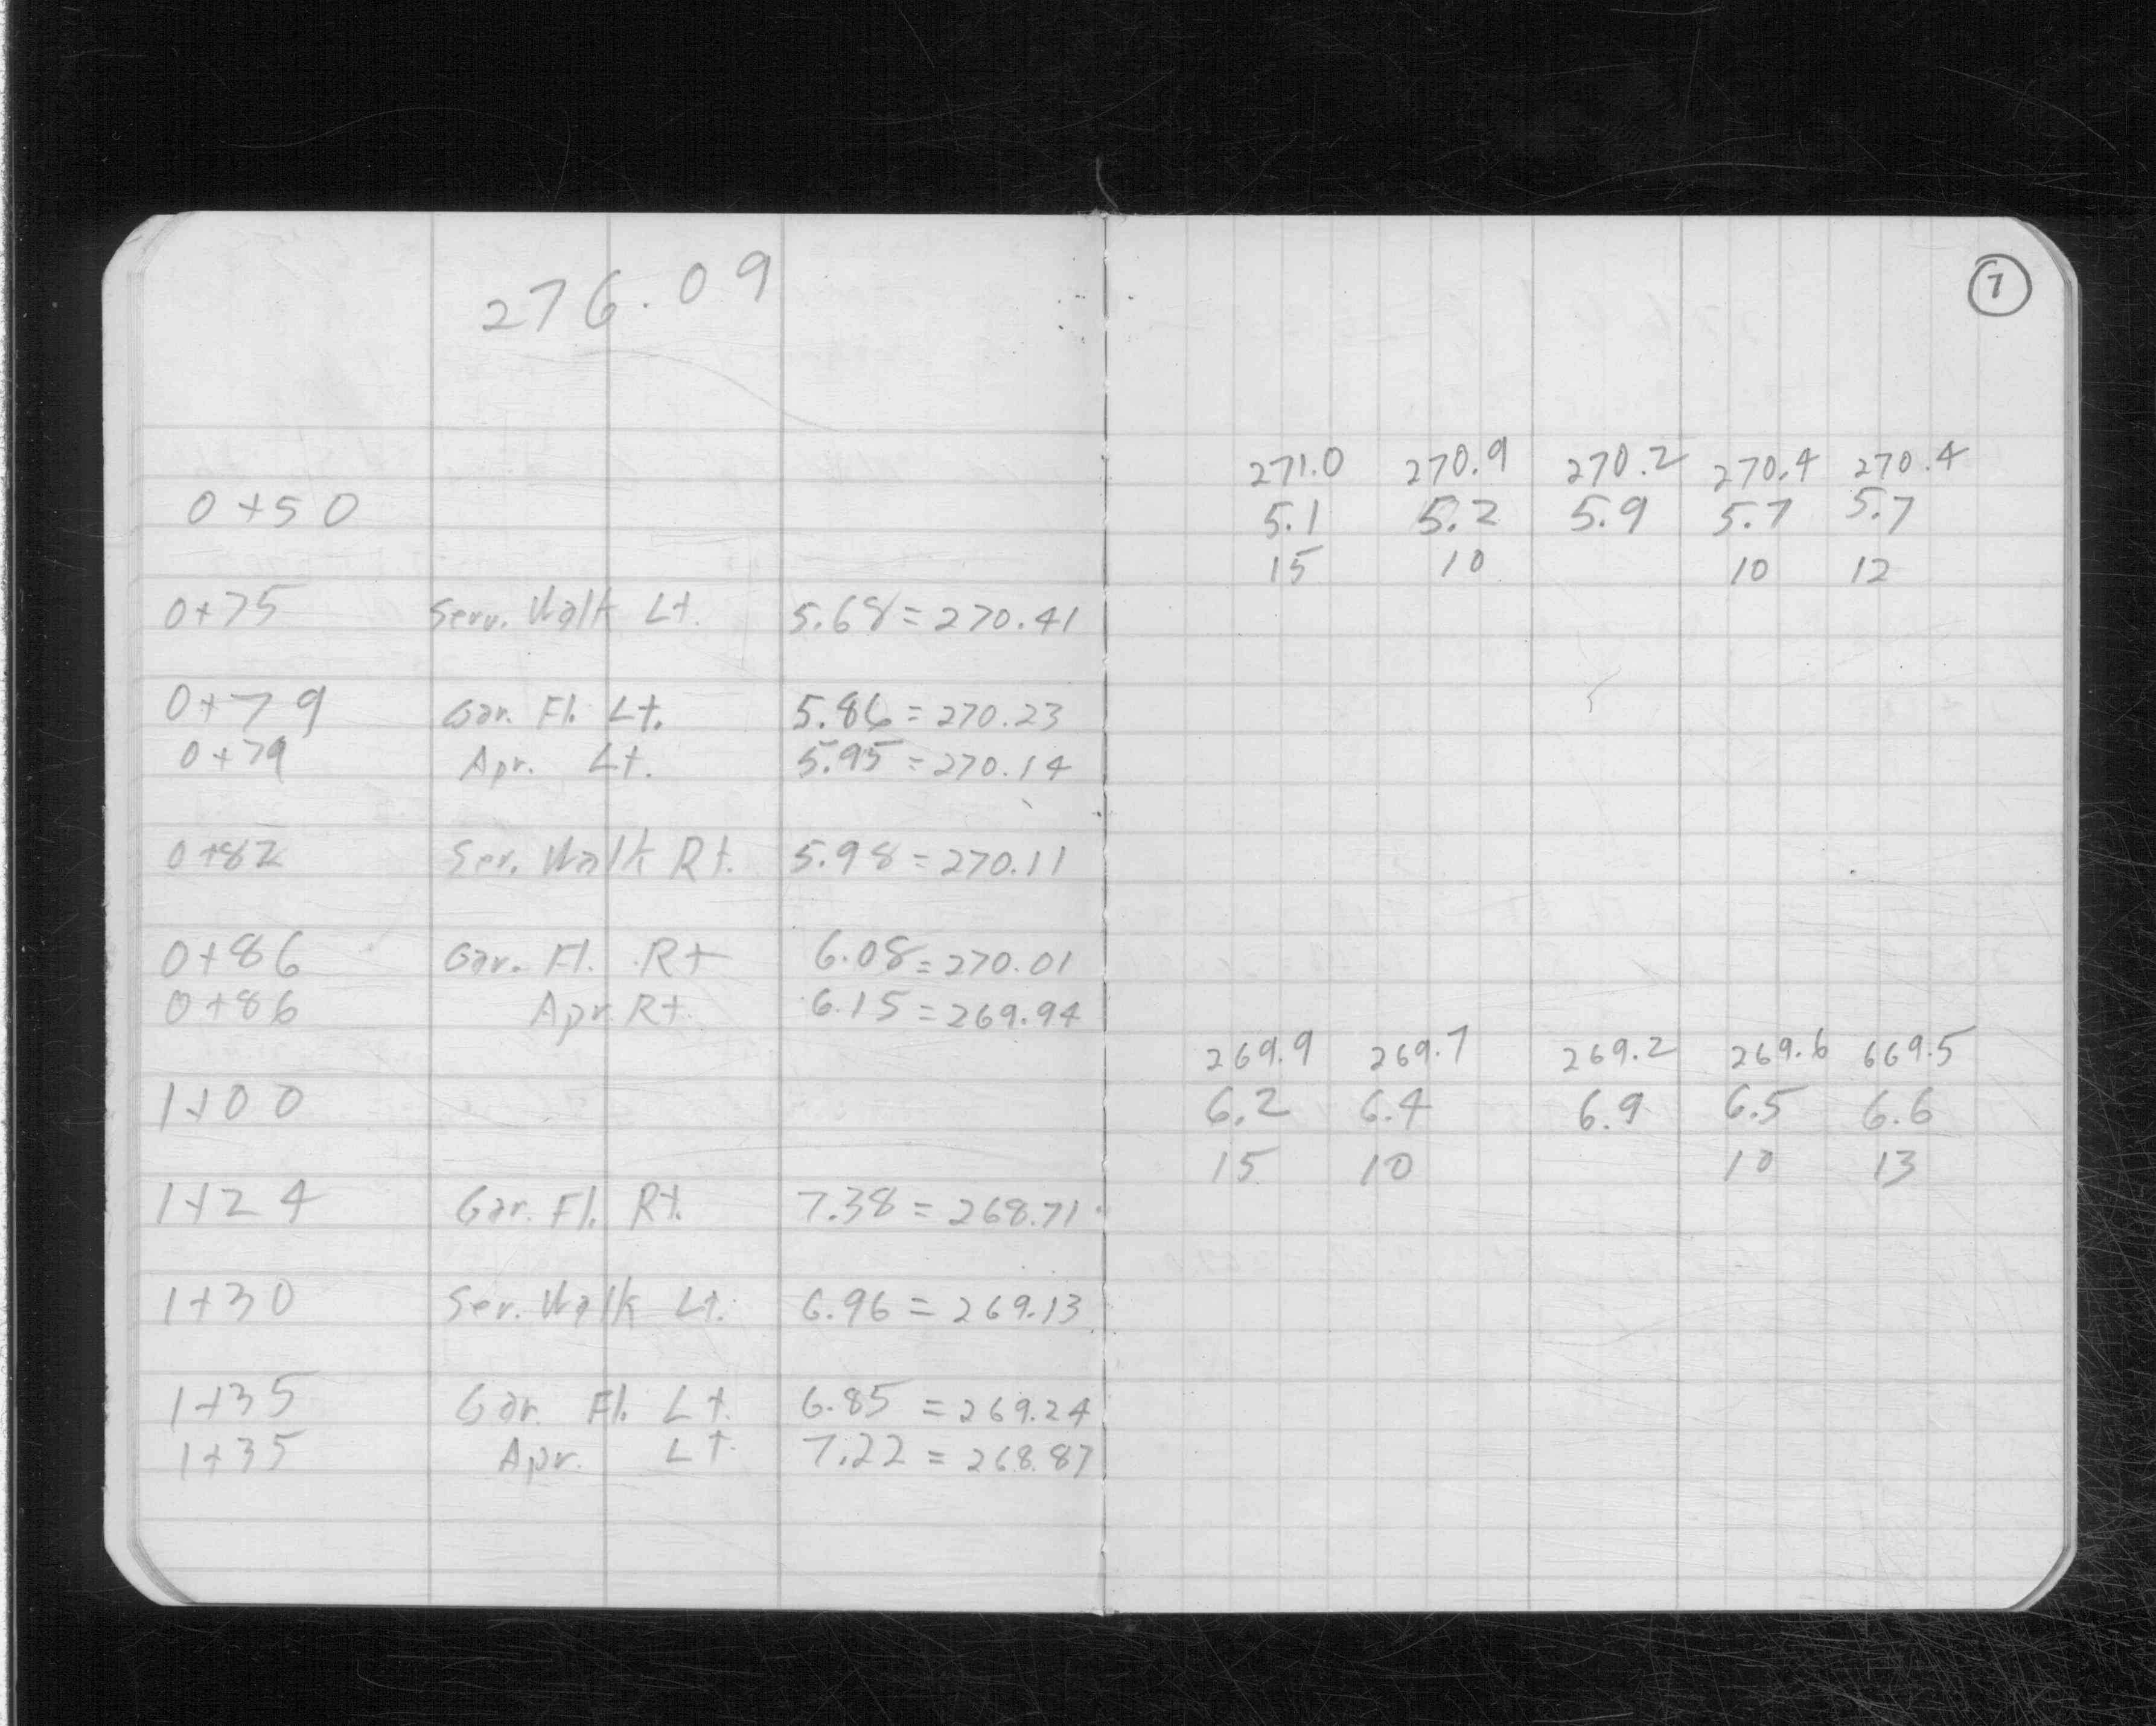 276.09
7
271.0 270.9 270.2 270.4 270.4
0+50 5.1 5.2 5.9 5.7 5.7
15 10 10 12
0+75 Serv. Walk Lt. 5.68 = 270.41
0+79 Gar. Fl. Lt. 5.86 = 270.23
0+79 Apr. Lt. 5.95 = 270.14
0+82 Ser. Walk Rt. 5.98 = 270.11
0+86 Gar. Fl. Rt 6.08 = 270.01
0+86 Apr. Rt. 6.15 = 269.94
269.9 269.7 269.2 269.6 669.5
1+00 6.2 6.4 6.9 6.5 6.6
15 10 10 13
1+24 Gar. Fl. Rt. 7.38 = 268.71
1+30 Ser. Walk Lt. 6.96 = 269.13
1+35 Gar. Fl. Lt. 6.85 = 269.24
1+35 Apr. Lt. 7.22 = 268.87